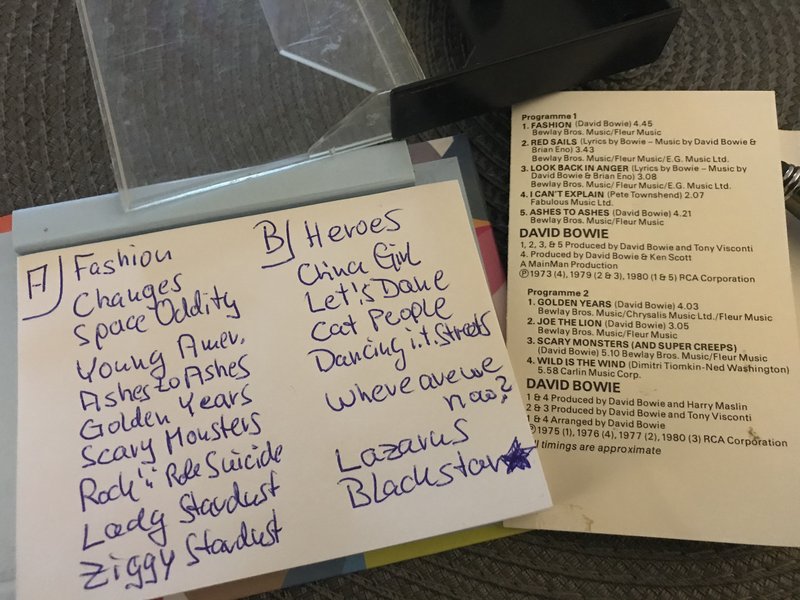 A) Fashion
Changes
Space Oddity
Young Amer.
Ashes to Ashes
Golden Years
Scary Monsters
Rock'i Role Suicide
Lady Stardust
Ziggy Stardust
B) Heroes
China Girl
Let's Dane
Cat People
Dancing i.t. Streets
Where are we
now?
Lazarus
Blackstar
Programme 1
1. FASHION (David Bowie) 4.45
Bewlay Bros. Music/Fleur Music
2. RED SAILS (Lyrics by Bowie – Music by David Bowie &
Brian Eno) 3.43
Bewlay Bros. Music/Fleur Music/E.G. Music Ltd.
3. LOOK BACK IN ANGER (Lyrics by Bowie – Music by
David Bowie & Brian Eno) 3.08
Bewlay Bros. Music/ Fleur Music/E.G. Music Ltd.
4. I CAN'T EXPLAIN (Pete Townshend) 2.07
Fabulous Music Ltd.
5. ASHES TO ASHES (David Bowie) 4.21
Bewlay Bros. Music/Fleur Music
DAVID BOWIE
1, 2, 3, & 5 Produced by David Bowie and Tony Visconti
4. Produced by David Bowie & Ken Scott
A MainMan Production
℗ 1973 (4), 1979 (2 & 3), 1980 (1 & 5) RCA Corporation
Programme 2
1. GOLDEN YEARS (David Bowie) 4.03
Bewlay Bros. Music/Chrysalis Music Ltd./Fleur Music
2. JOE THE LION (David Bowie) 3.05
Bewlay Bros. Music/Fleur Music
3. SCARY MONSTERS (AND SUPER CREEPS)
(David Bowie) 5.10 Bewlay Bros. Music/Fleur Music
4. WILD IS THE WIND (Dimitri Tiomkin-Ned Washington)
5.58 Carlin Music Corp.
DAVID BOWIE
1 & 4 Produced by David Bowie and Harry Maslin
2 & 3 Produced by David Bowie and Tony Visconti
1 & 4 Arranged by David Bowie
℗ 1975 (1), 1976 (4), 1977 (2), 1980 (3) RCA Corporation
timings are approximate